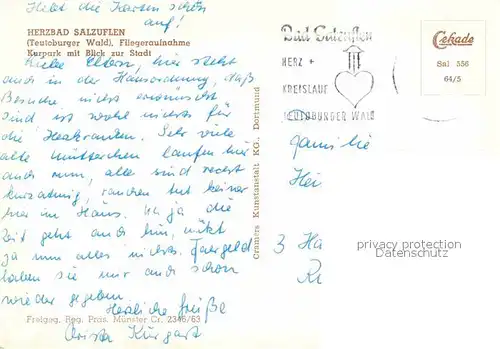 Hebt die Karten schön
auf!
HERZBAD SALZUFLEN
(Teutoburger Wald), Fliegeraufnahme
Kurpark mit Blick zur Stadt
Liebe Eltern, hier steht
auch in der Hausordnung, daß
Besuche nicht erwünscht
sind ist wohl nichts für
die Herzkranken. Sehr viele
alte Mütterchen laufen hier
auch rum, alle sind recht
kurzatmig, rauchen tut keiner
hier im Haus. Na ja die
Zeit geht auch hin, nützt
ja nun alles nichts. Fahrgeld
haben sie mir auch schon
wieder gegeben.
Herzliche Grüße
Freigeg. Reg. Präs. Münster Cr. 2346/63
Crämers Kunstanstalt KG., Dortmund
Bad Salzuflen
HERZ +
KREISLAUF
TEUTOBURGER WALD
Cekade
Sal 556
64/5
Familie
Hei
3 Ha
privacy protection
Datenschutz